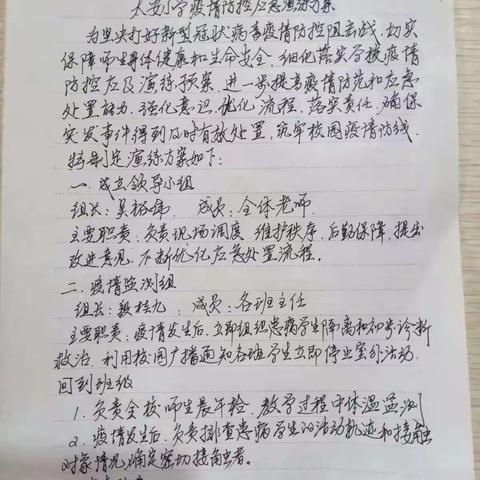 太安小学疫情防控应急演练方案
为坚决打好新型冠状病毒疫情防控阻击战,切实
保障师生身体健康和生命安全,细化落实学校疫情
防控应及演练预案,进一步提高疫情防范和应急
处置能力,强化意识,优化流程,落实责任,确保
突发事件得到及时有效处置,筑牢校园疫情防线,
特制定演练方案如下:
一、成立领导小组
组长:吴裕炜 成员:全体老师
主要职责:负责现场调度、维护秩序,后勤保障,提出
改进意见,不断优化应急处置流程。
二、疫情监测组
组长:段桂九 成员:各班主任
主要职责:疫情发生后,立即组织患病学生隔离和初步诊断
救治,利用校园广播通知各班学生立即停止室外活动,
回到班级
1、负责全校师生晨午检,教学过程中体温监测
2、疫情发生后,负责排查患病学生的活动轨迹和接触
对象情况,确定密切接触者。